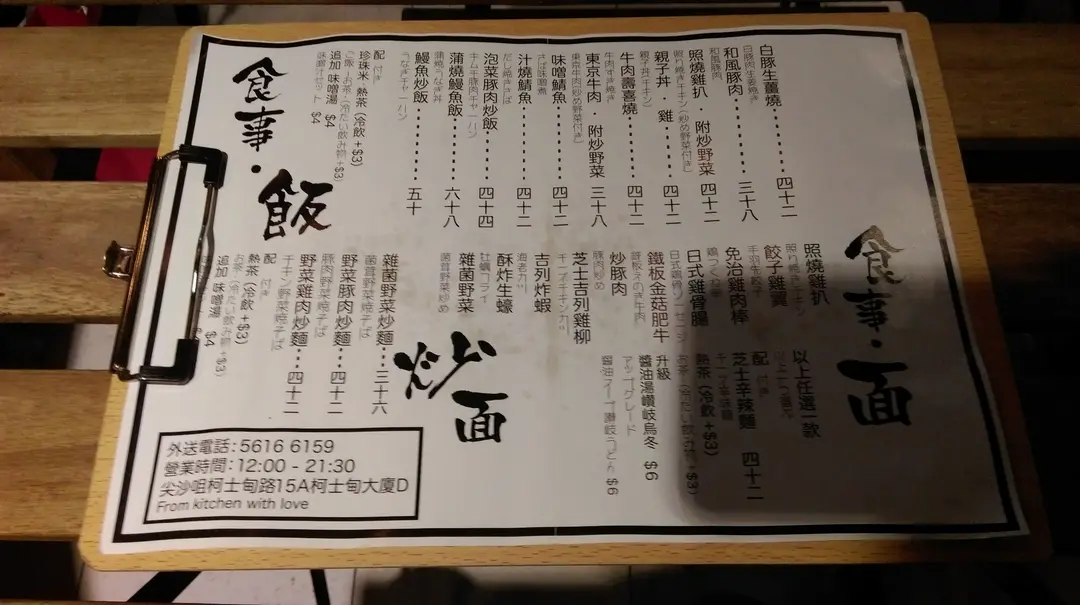 食事・飯
白豚生薑燒 四十二
白豚肉生姜焼き
和風豚肉 三十八
和風豚肉
照燒雞扒・附炒野菜 四十二
照り焼きチキン(炒め野菜付き)
親子丼・雞 四十二
親子丼チキン
牛肉壽喜燒 四十二
牛肉すき焼き
東京牛肉・附炒野菜 三十八
東京牛肉(炒め野菜付き)
味噌鯖魚 四十二
さば味噌煮
汁燒鯖魚 四十二
だし焼きさば
泡菜豚肉炒飯 四十四
キムチ豚肉チャーハン
蒲燒鰻魚飯 六十八
蒲焼うなぎ丼
鰻魚炒飯 五十
うなぎチャーハン
配 付き
珍珠米 熱茶(冷飲 +$3)
ご飯 お茶(冷たい飲み物 +$3)
追加 味噌湯 $4
味噌汁セット $4
食事・面
照燒雞扒
照り焼きチキン
餃子雞翼
手羽先餃子
免治雞肉棒
鶏つくね串
日式雞骨腸
日式鶏骨ソーセージ
鐵板金菇肥牛
鉄板えのき牛肉
炒豚肉
豚肉炒め
芝士吉列雞柳
チーズチキンカツ
吉列炸蝦
海老カツ
酥炸生蠔
牡蠣フライ
雜菌野菜
茵茸野菜炒め
以上任選一款
配 付き
芝士辛辣麵 四十二
チーズ辛味麺
熱茶(冷飲 +$3)
お茶(冷たい飲み物 +$3)
升級
醬油湯讚岐烏冬 $6
アップグレード
醤油スープ讃岐うどん $6
炒面
雜菌野菜炒麵 三十六
茵茸野菜焼そば
野菜豚肉炒麵 四十二
豚肉野菜焼そば
野菜雞肉炒麵 四十二
チキン野菜焼そば
配 付き
熱茶(冷飲 +$3)
お茶(冷たい飲み物 +$3)
追加 味噌湯 $4
外送電話:5616 6159
營業時間:12:00 - 21:30
尖沙咀柯士甸路15A柯士甸大廈D
From kitchen with love